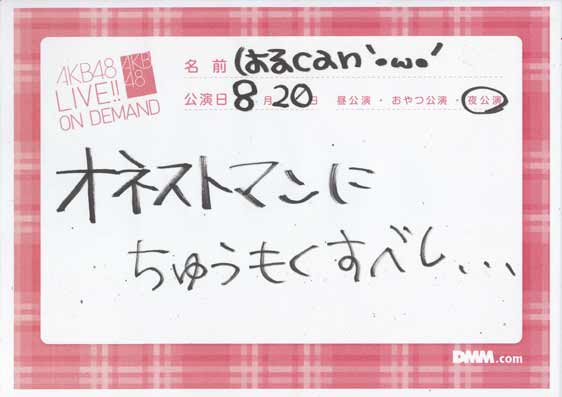 AKB48
LIVE!!
ON DEMAND
AKB
48
名前 はるcan'•ω•'
公演日 8月20日 昼公演・おやつ公演・夜公演
オネストマンに
ちゅうもくすべし、、、
DMM.com